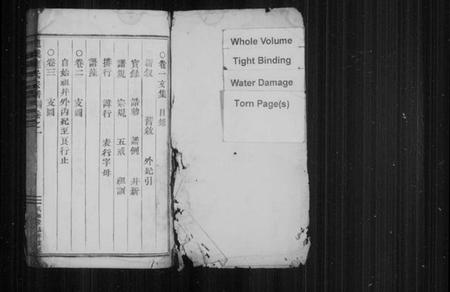 ○卷一文集 目錄
新敘 舊敘 外紀引
實錄 誥勅 譜例 弁新
譜規 宗規 五戒 祖訓
排行 諱行 表行字母
譜葉
○卷二 支圖
自始祖并外內紀至良行止
○卷三 支圖
Whole Volume
Tight Binding
Water Damage
Torn Page(s)